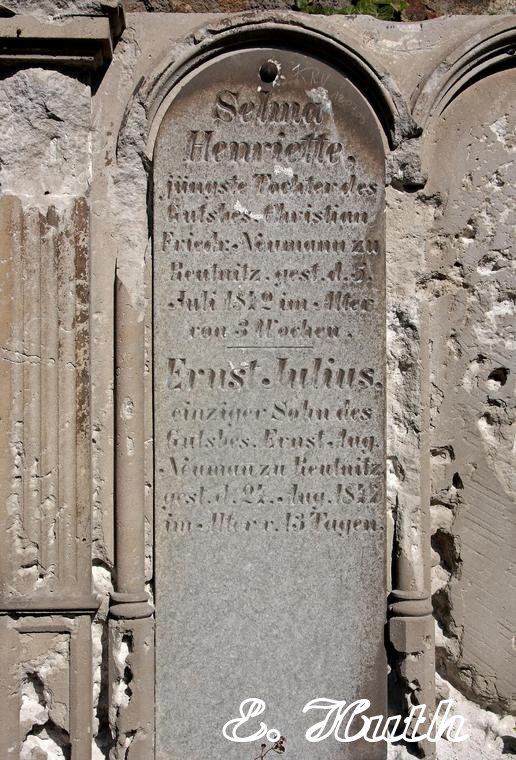 Selma
Henriette,
jüngste Tochter des
Gutsbes. Christian
Friedr. Neumann zu
Reutnitz. gest. d. 5.
Juli 1842 im Alter
von 3 Wochen.
Ernst Julius,
einziger Sohn des
Gutsbes. Ernst Aug.
Neuman zu Reutnitz
gest. d. 24. Aug. 1842
im Alter v. 13 Tagen.
E. Huth